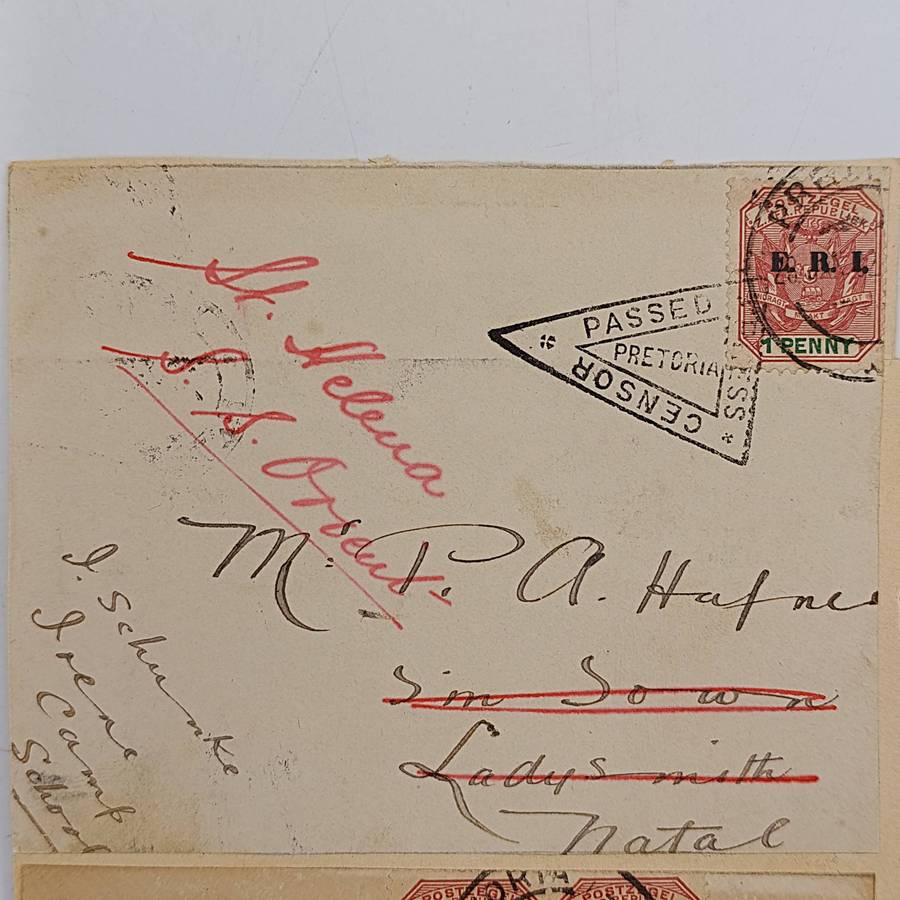 POSTZEGEL
Z. AFR. REPUBLIEK
E. R. I.
EENDRAGT MAAKT MAGT
1 PENNY
PASSED
PRETORIA
CENSOR
St. Helena
S. S. Orient
Mr. P. A. Hafne
Sim Town
Ladysmith
Natal
I. Schunke
Irene
Camp
School
ORIA
POSTZEGEL
POSTZEGEL